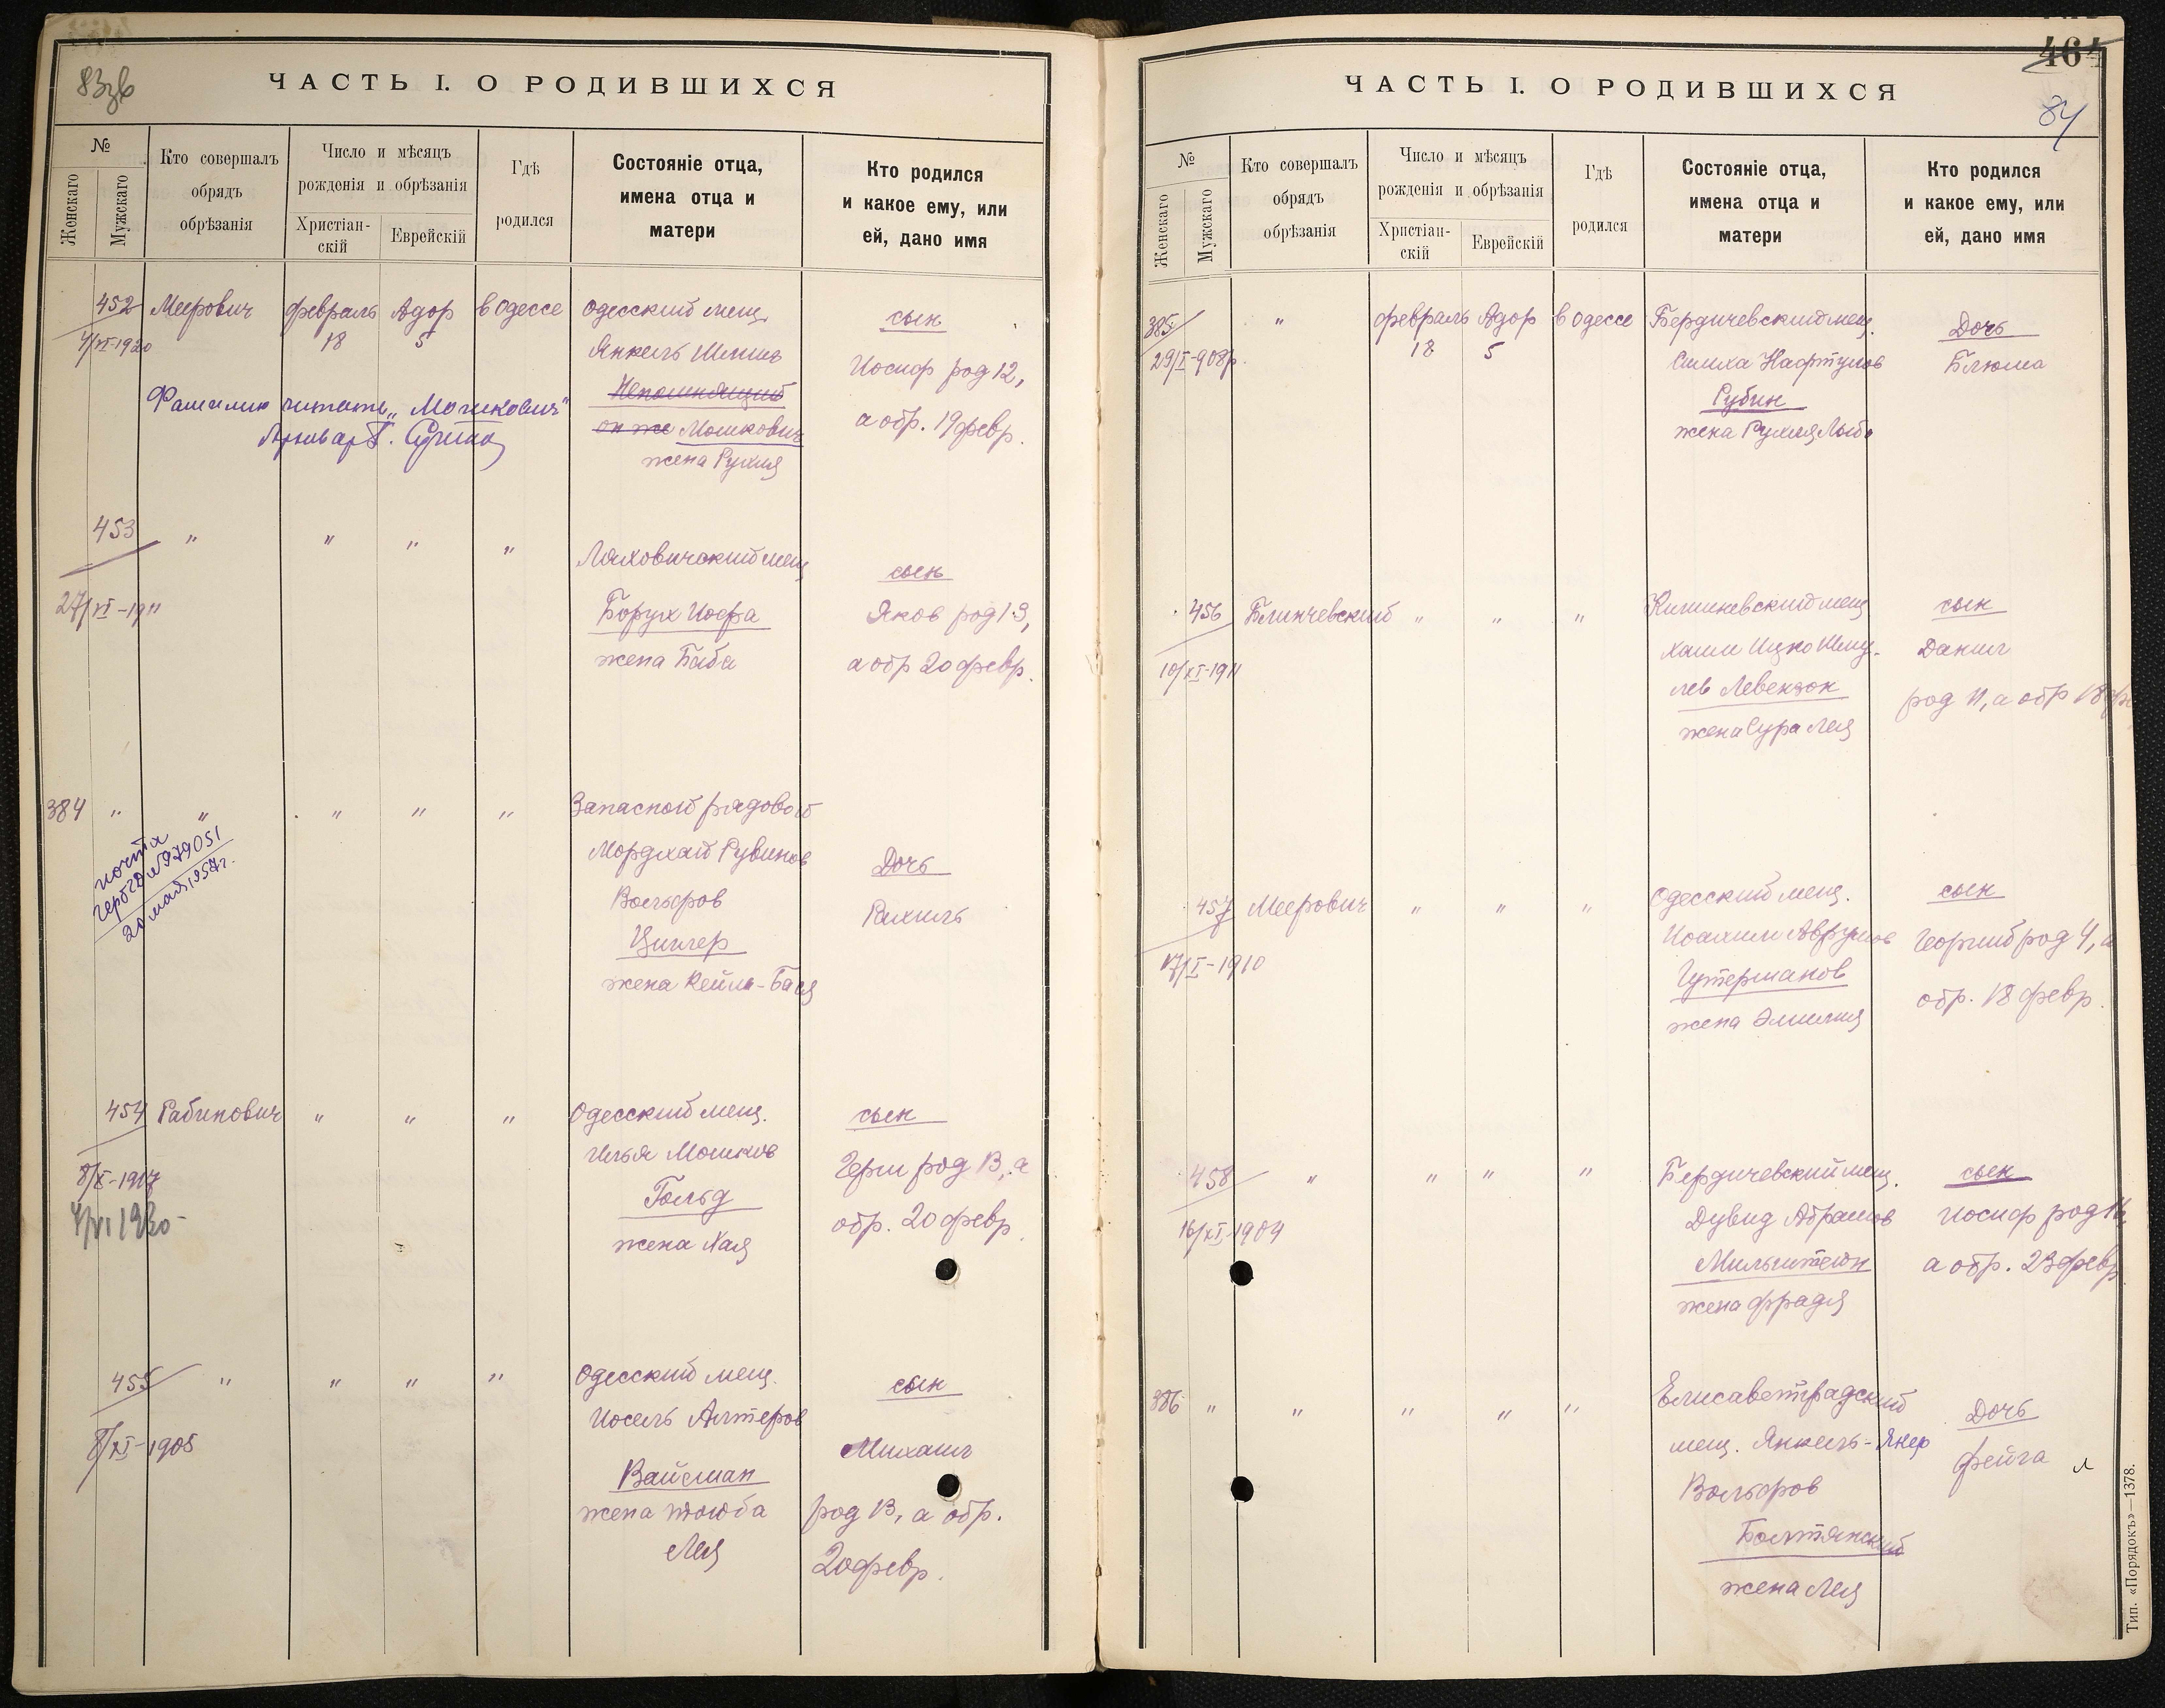 83зв
ЧАСТЬ I. О РОДИВШИХСЯ
№
Женскаго
Мужскаго
Кто совершалъ
обрядъ
обрѣзанія
Число и мѣсяцъ
рожденія и обрѣзанія
Христіан-
скій
Еврейскій
Гдѣ
родился
Состояніе отца,
имена отца и
матери
Кто родился
и какое ему, или
ей, дано имя
452 Меерович февраль Адор в Одессе Одесский мещ. сын
4/VI-1920 18 5 Янкель Шмиль
Иосиф род 12,
Непомнящий
а обр. 19 февр.
он же Мошкович
жена Рухля
Фамилию читать „Мошкович"
453 " " " " Ляховичский мещ
сын
27/VI-1911 Борух Иофа Яков род 13,
жена Баба а обр 20 февр.
384 " " " " " Запасной рядовой
Мордхай Рувинов Дочь
Вольфров
Рахиль
Циплер
жена Кейля-Бася
почта
20 мая 1957 г.
454 Рабинович " " " Одесский мещ. сын
Илья Мошков Герш род 13, а
8/X-1917
Гольд
обр. 20 февр.
4/VI 1930
жена Хая
455 " " " " Одесский мещ. сын
Иосель Алтеров
8/XI-1905 Михаил
Вайсман
жена Тойба род 13, а обр.
Лея 20 февр.
464
84
ЧАСТЬ I. О РОДИВШИХСЯ
№
Женскаго
Мужскаго
Кто совершалъ
обрядъ
обрѣзанія
Число и мѣсяцъ
рожденія и обрѣзанія
Христіан-
скій
Еврейскій
Гдѣ
родился
Состояніе отца,
имена отца и
матери
Кто родился
и какое ему, или
ей, дано имя
385 " февраль Адор в Одессе Бердичевский мещ. Дочь
29/I-908 р. 18 5 Симха Нафтулов Блюма
Рубин
жена Рухля
456 Блинчевский " " " Кишиневский мещ сын
Хаим Ицко Шму- Данил
10/XI-1911
лев Левензон род 11, а обр 18
жена Сура Лея
457 Меерович " " " Одесский мещ. сын
Иоахим Аврумов Георгий род 4, а
17/I-1910
Гутерманов обр. 18 февр.
жена Эмилия
458 " " " " Бердичевский мещ. сын
16/XI-1909 Дувид Абрамов Иосиф род 16,
Мильштейн а обр. 23 февр.
жена Фрадя
386 " " " " " Елисаветградский Дочь
мещ. Янкель-Якер
Фейга
Вольфров
Болтянский
жена Лея
Тип. «Порядокъ»—1378.